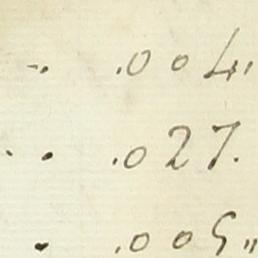 .004,,
.027.
.005,,